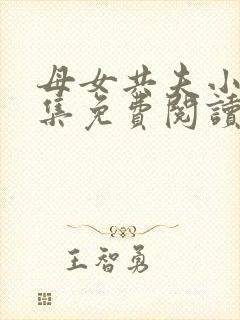 母女共夫小
集免費閱讀
王智勇